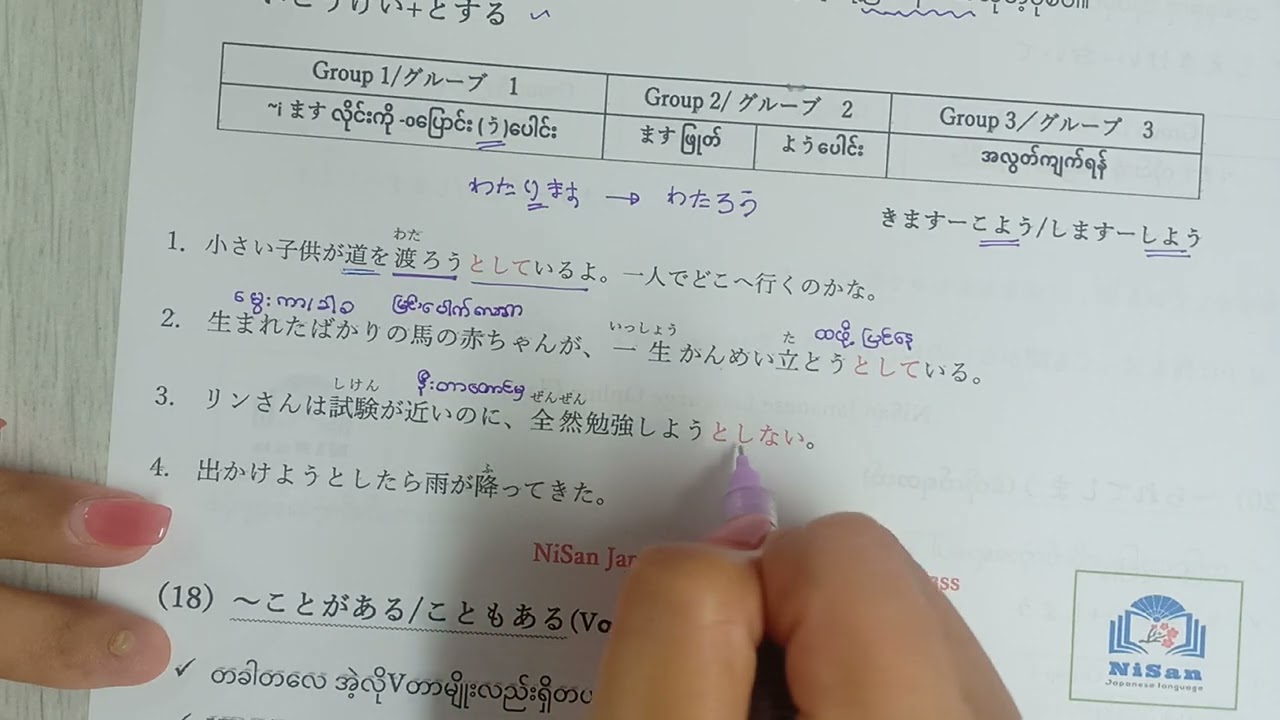 いこうけい+とする
Group 1/グループ 1 Group 2/ グループ 2 Group 3/グループ 3
~i ます လိုင်းကို -oပြောင်း (う)ပေါင်း ますဖြုတ် ようပေါင်း အလွတ်ကျက်ရန်
わたります → わたろう
きますーこよう/しますーしよう
わた
1. 小さい子供が道を渡ろうとしているよ。一人でどこへ行くのかな。
မွေးကာစ
いっしょう た ထဖို့ ပြင်နေ
2. 生まれたばかりの馬の赤ちゃんが、一生かんめい立とうとしている。
しけん နီးတာတောင်မှ ぜんぜん
3. リンさんは試験が近いのに、全然勉強しようとしない。
ふ
4. 出かけようとしたら雨が降ってきた。
NiSan
(18) ～ことがある/こともある
✓ တခါတလေ အဲ့လိုVတာမျိုးလည်းရှိတ
NiSan
Japanese language